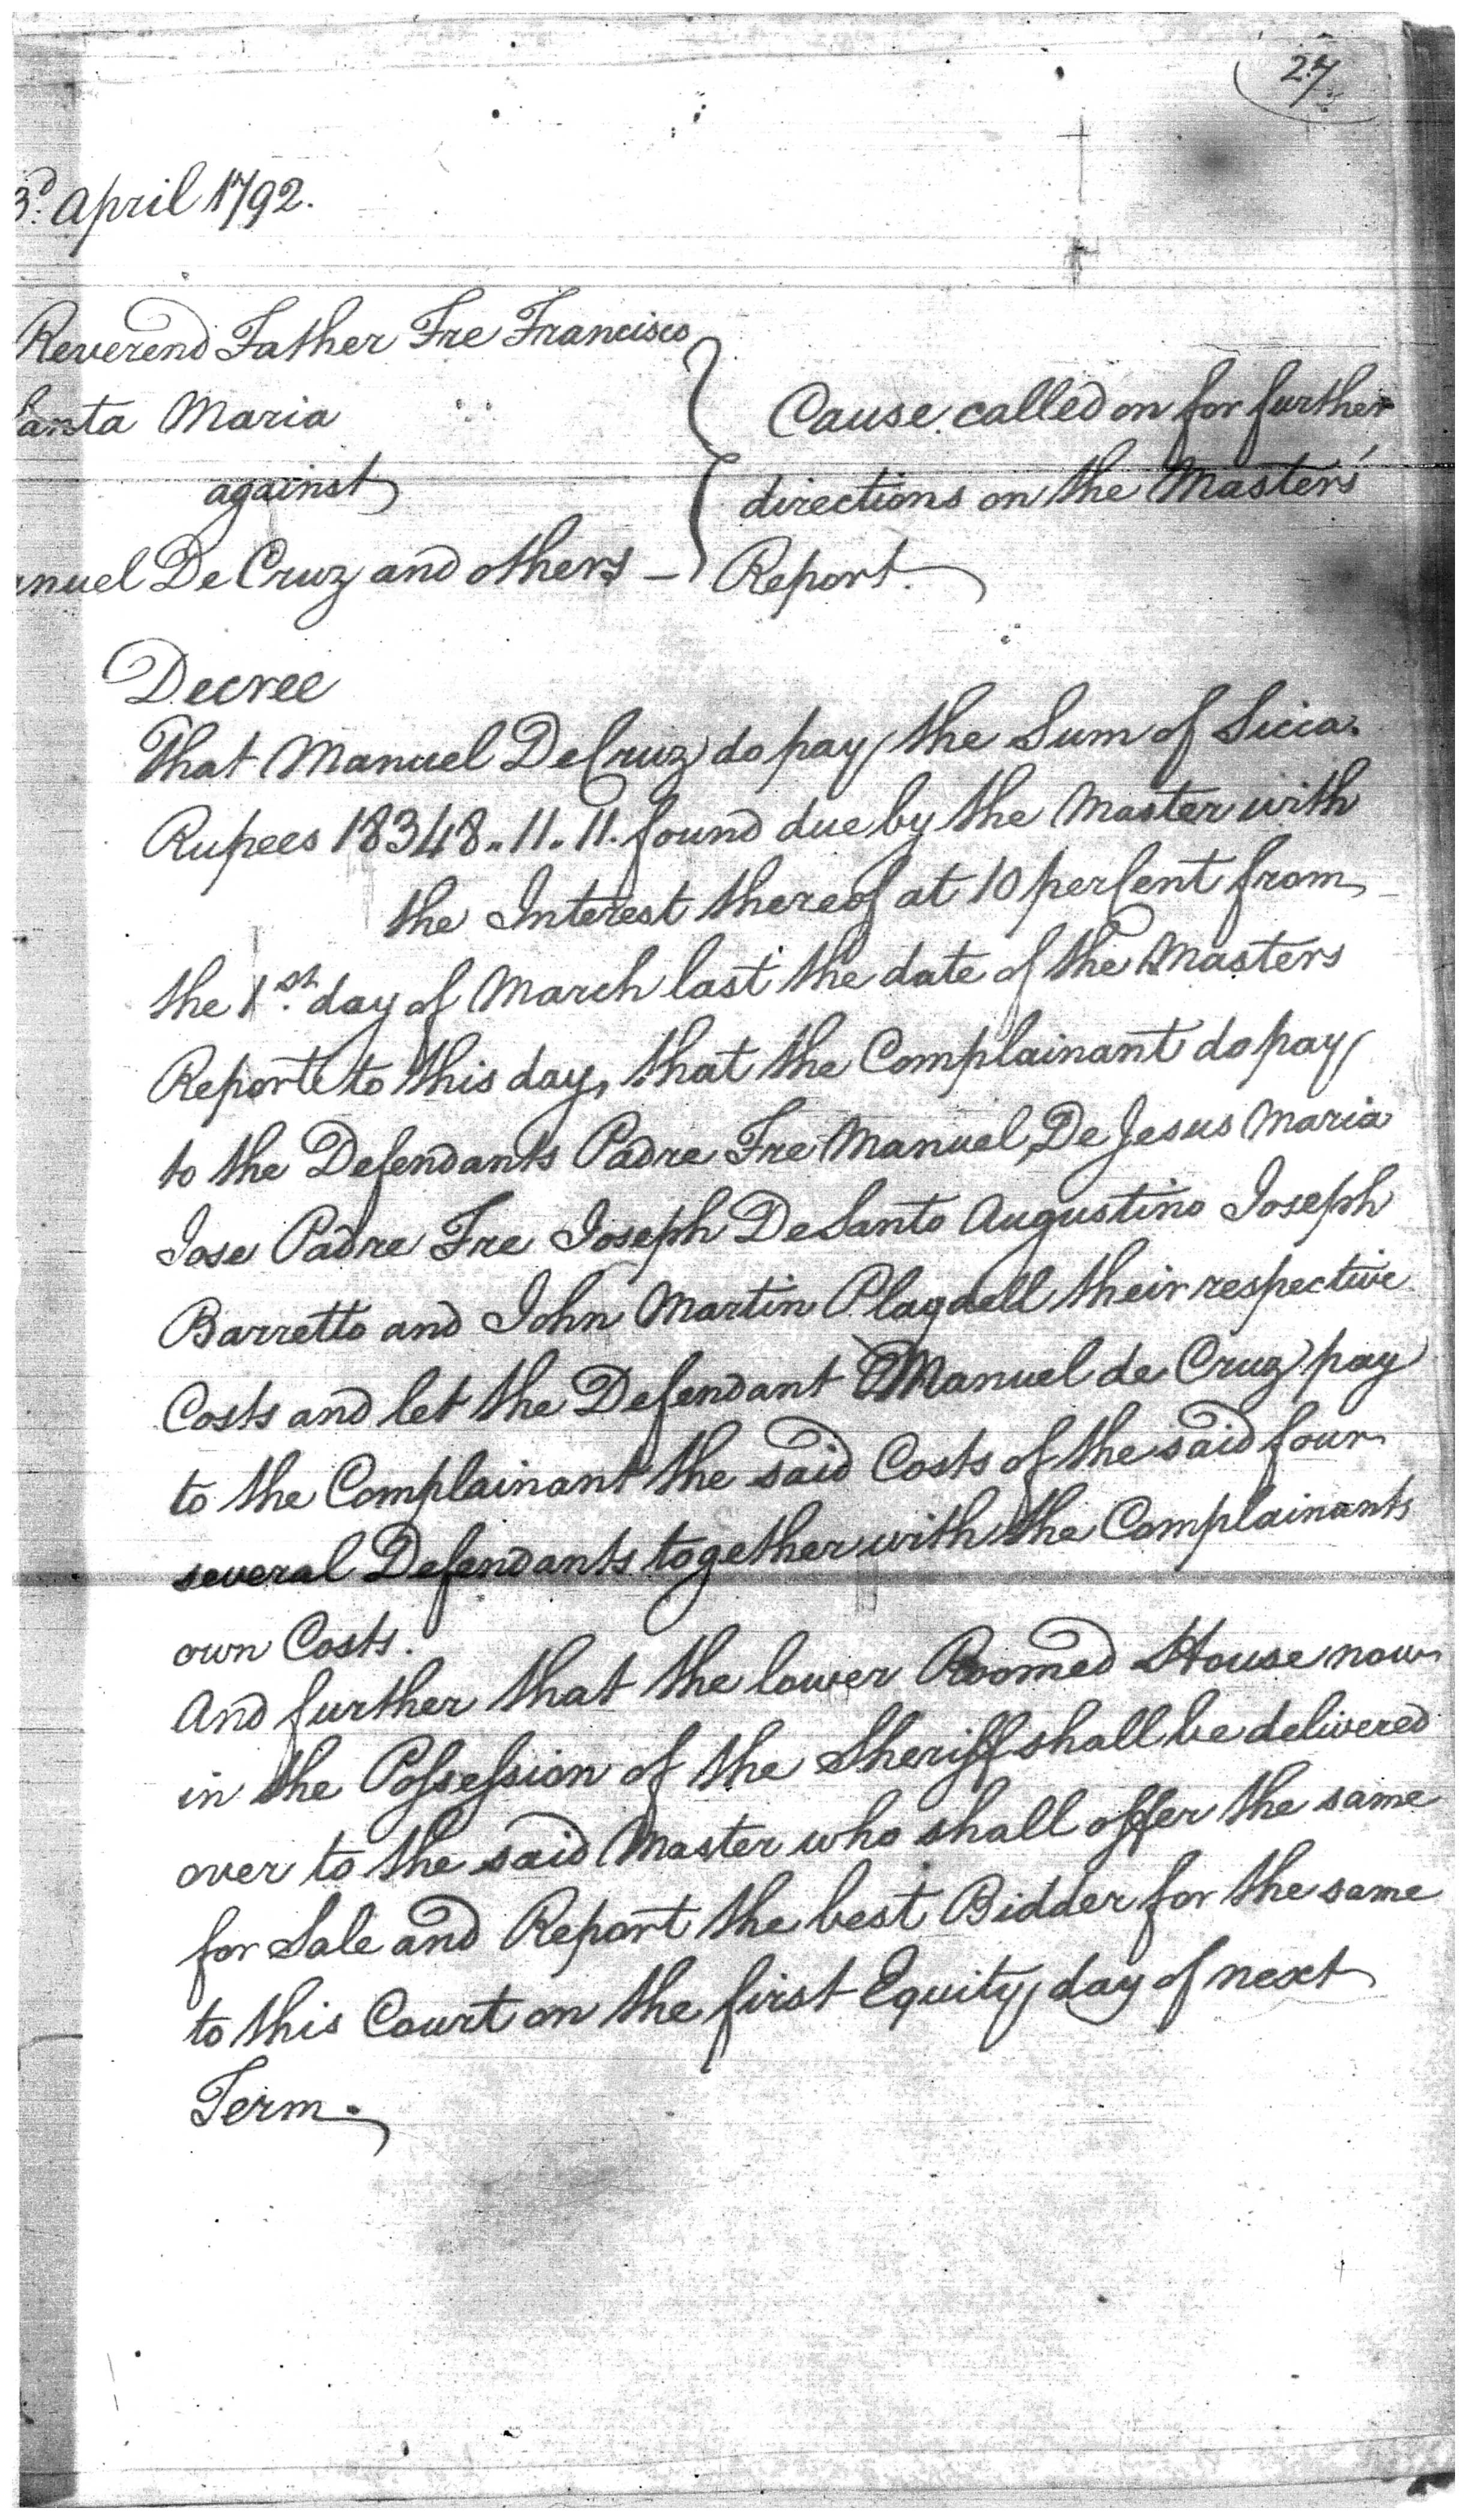 27
3d. April 1792.
Reverend Father Fre Francisco
Santa Maria
against
anuel De Cruz and others —
Cause called on for further
directions on the Masters
Report.
Decree
That Manuel De Cruz do pay the Sum of Sicca
Rupees 18348.. 11. 11. found due by the Master with
the Interest thereof at 10 per Cent from
the 1st. day of March last the date of the Masters
Report to this day, that the Complainant do pay
to the Defendants Padre Fre Manuel De Jesus Maria
Jose Padre Fre Joseph De Santo Augustino Joseph
Barretto and John Martin Playdell their respective
Costs and let the Defendant Manuel de Cruz pay
to the Complainant the said Costs of the said four
several Defendants together with the Complainants
own Costs.
And further that the lower Roomed House now
in the Possession of the Sheriff shall be delivered
over to the said Master who shall offer the same
for Sale and Report the best Bidder for the same
to this Court on the first Equity day of next
Term.